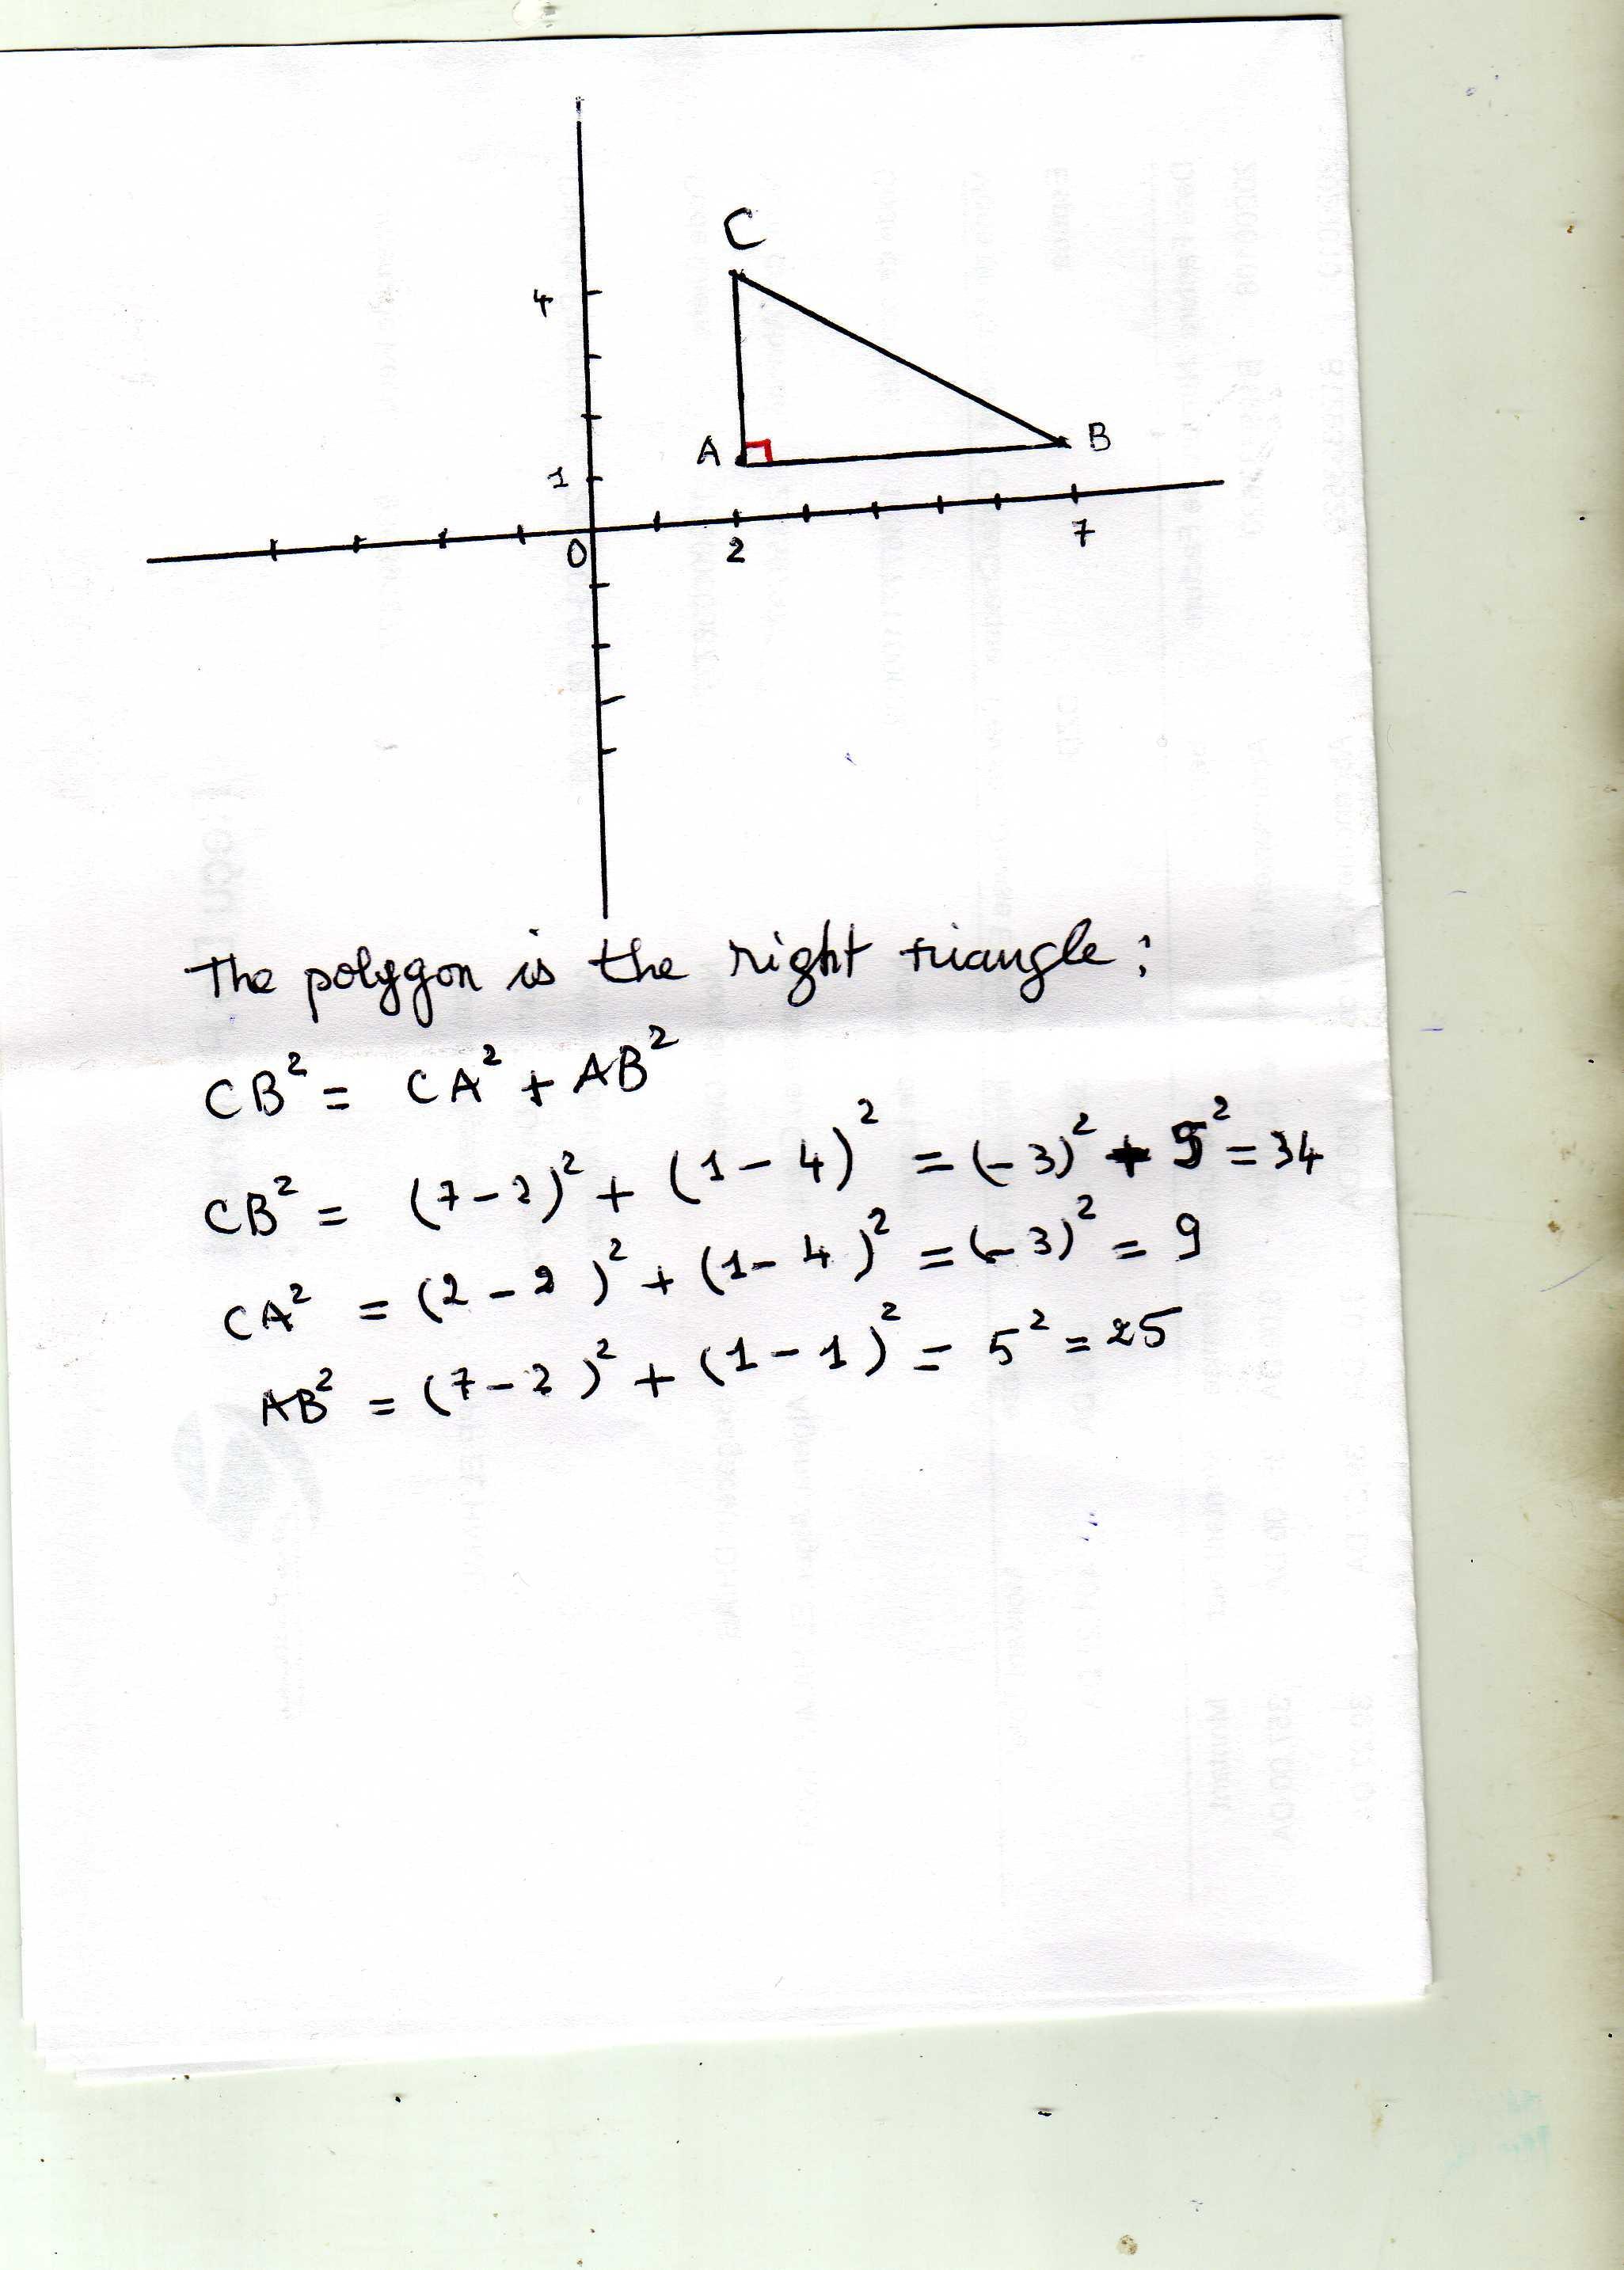 C
4
A
B
1
0
2
7
The polygon is the right triangle:
CB² = CA² + AB²
CB² = (7-2)² + (1-4)² = (-3)² + 5² = 34
CA² = (2-2)² + (1-4)² = (-3)² = 9
AB² = (7-2)² + (1-1)² = 5² = 25